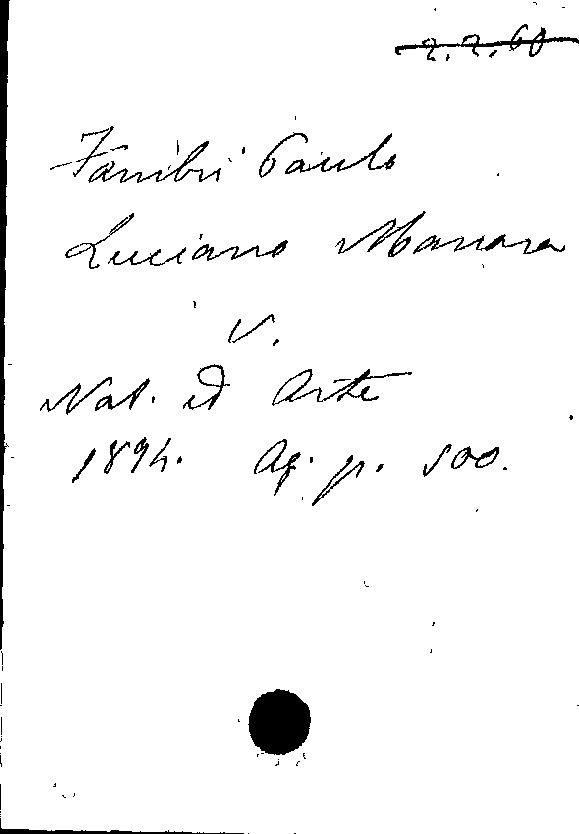 2.2.60
Fambri Paulo
Luciano Manara
V.
Nat. ed Arte
1894. Ag. p. 500.